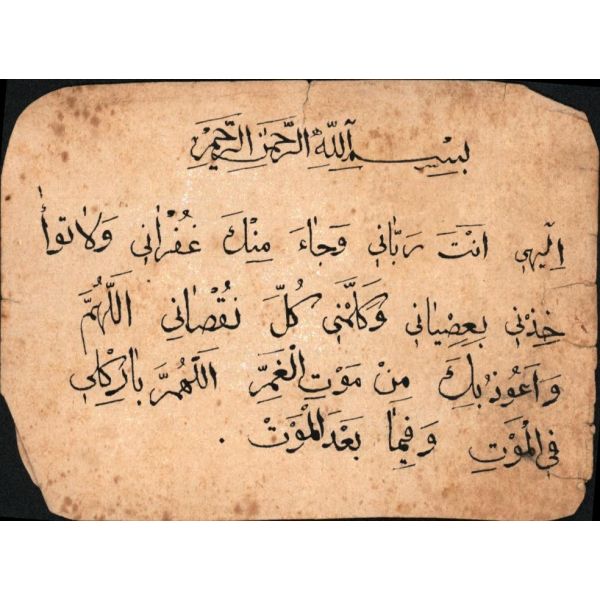 بسم اللّٰه الرَّحْمٰنِ الرَّحِيمِ
اِلٰهِي اَنْتَ رَبَّانِي وَجَاءَ مِنْكَ غُفْرَانِي وَلَا تُوأَ
خِذْنِي بِعِصْيَانِي وَكَلِّمْنِي كُلِّ نُقْصَانِي اَللّٰهُمَّ
وَاَعُوذُ بِكَ مِنْ مَوْتِ الْغَمِّ اَللّٰهُمَّ بَارِكْ لِي
فِي الْمَوْتِ وَفِيمَا بَعْدَ الْمَوْتْ .